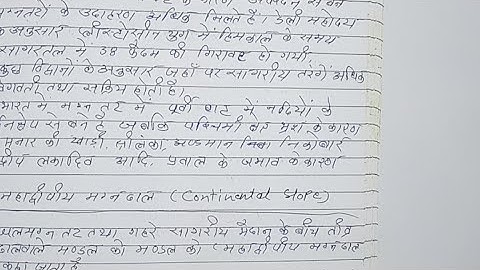 मग्नतटों के उदाहरण अधिक मिलते हैं। डेली महोदय
के अनुसार प्लीस्टोसीन युग में हिमकाल के समय
सागरतल में 38 फैदम की गिरावट हो गयी।
कुछ विद्वानों के अनुसार जहाँ पर सागरीय तरंगें अधिक
वेगवती तथा सक्रिय होती हैं।
भारत में मग्न तट में पूर्वी घाट में नदियों के
निक्षेप से बने हैं जबकि पश्चिमी तट भ्रंश के कारण
मन्नार की खाड़ी, श्रीलंका, अण्डमान निकोबार
द्वीप लकादिव आदि, प्रवाल के जमाव के कारण
महाद्वीपीय मग्नढाल (Continental Slope)
जलमग्न तट तथा गहरे सागरीय मैदान के बीच तीव्र
ढालवाले मण्डल को मण्डल को (महाद्वीपीय मग्नढाल
कहा जाता है